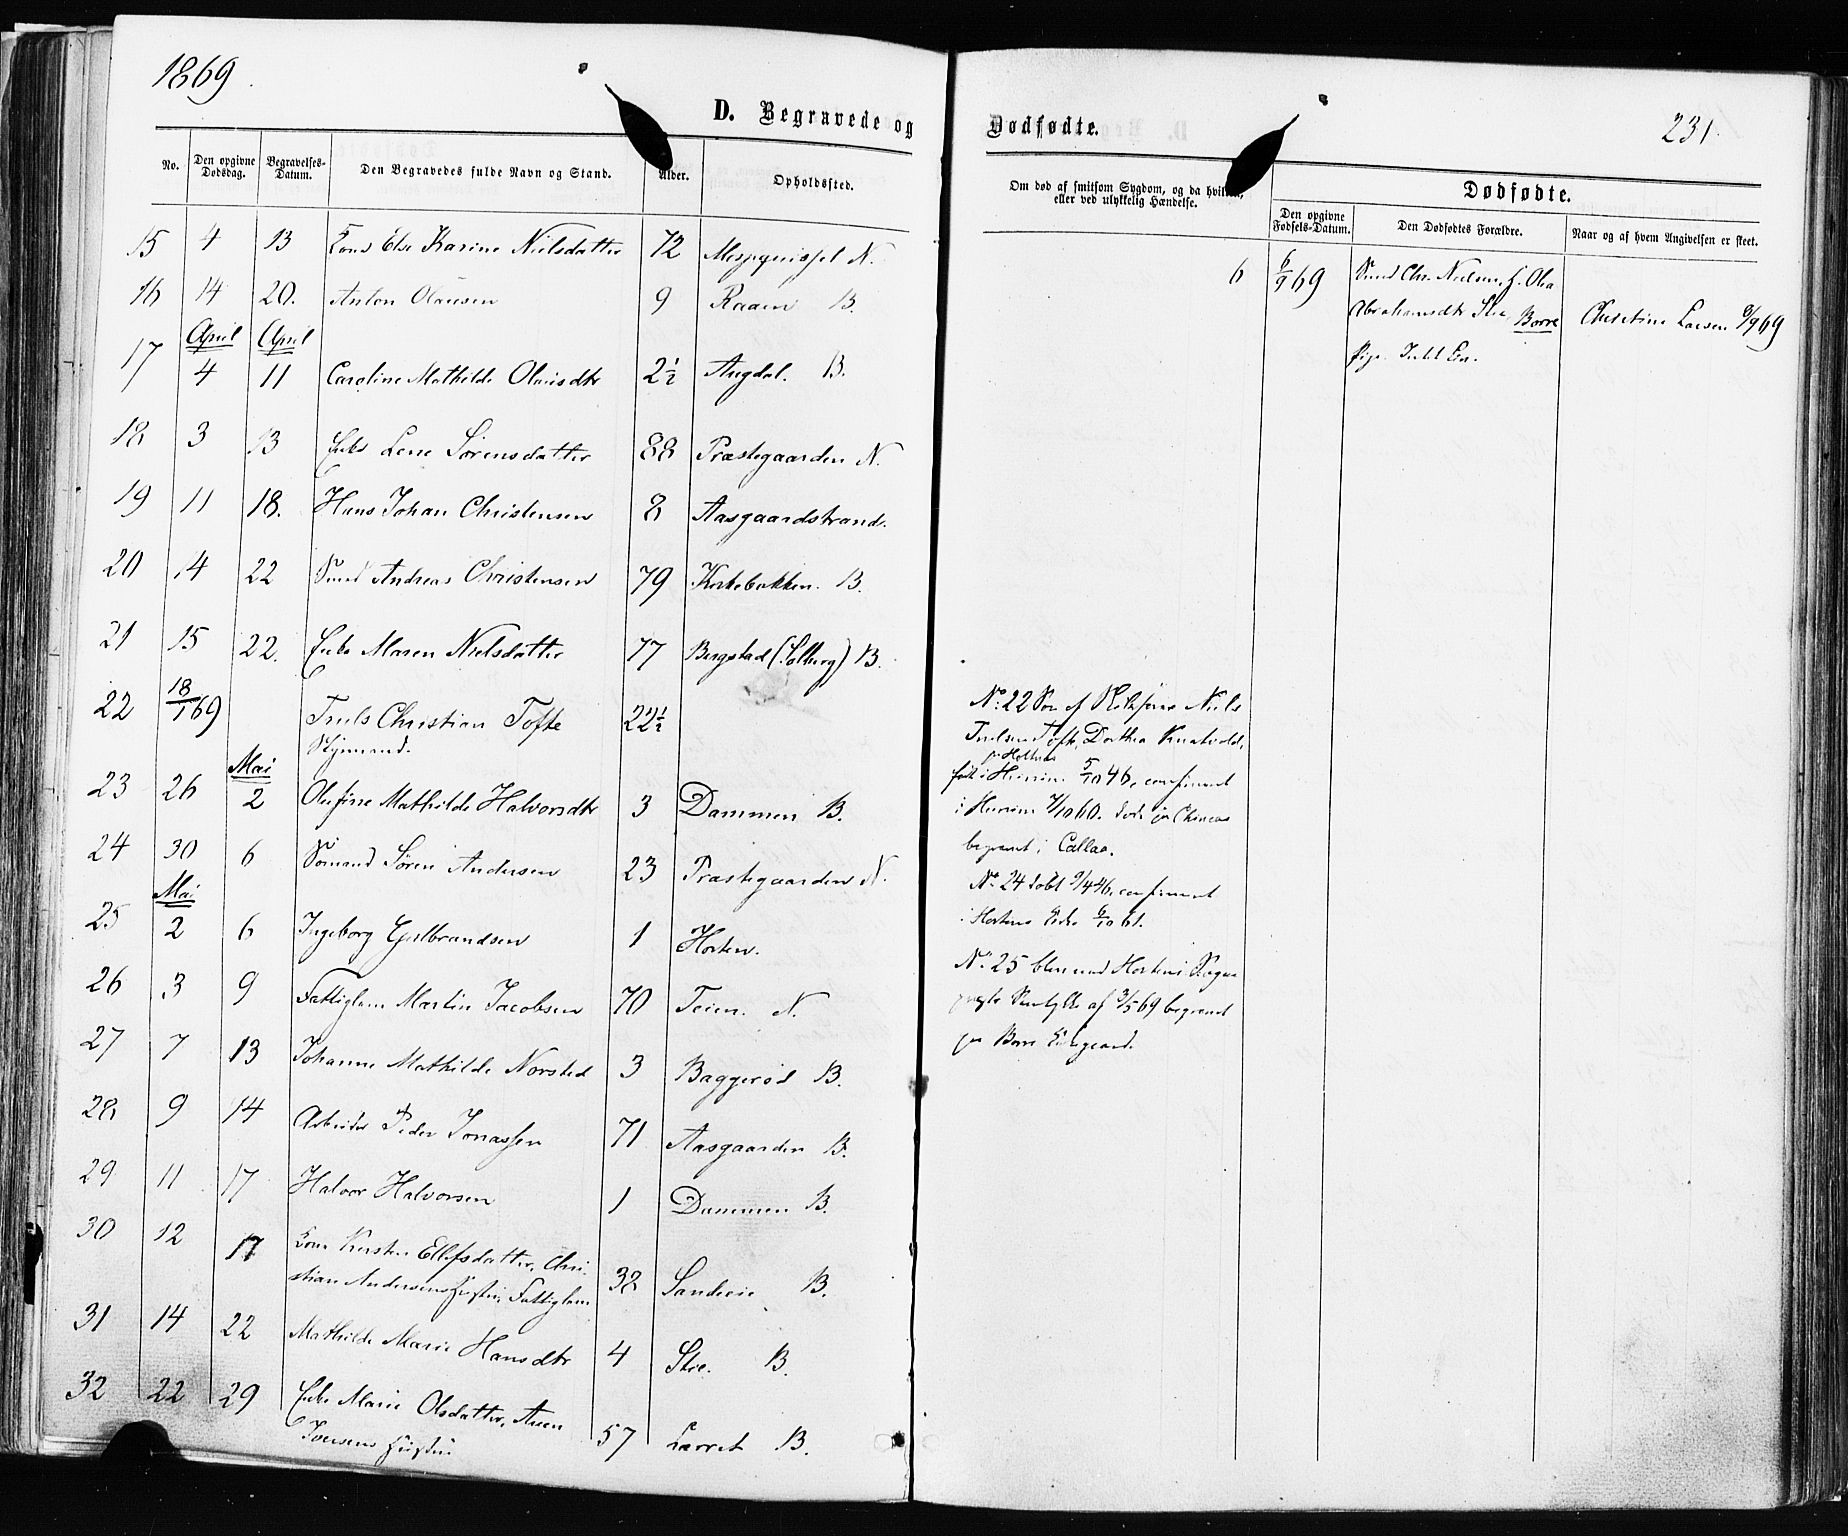 1869.
D. Begravede og
Dødfødte.
231.
No.
Den opgivne Dødsdag.
Begravelses-Datum.
Den Begravedes fulde Navn og Stand.
Alder.
Opholdssted.
Om død af smitsom Sygdom, og da hvilken, eller ved ulykkelig Hændelse.
Dødfødte.
Den opgivne Fødsels-Datum.
Den Dødfødtes Forældre.
Naar og af hvem Angivelsen er skeet.
15 4 13 Kone Else Karine Nielsdatter 72 N.
16 14 20. Anton Olausen 9 Raaen B.
April April
17 4 11 Caroline Mathilde Olausdtr 2½ Augdal. B.
18 3 13 Enke Lene Sørensdatter 88 Præstegaarden N.
19 11 18. Hans Johan Christensen 8 Aasgaardstrand.
20 14 22 Andreas Christensen 79 Kirkebakken. B.
21 15 22. Enke Maren Nielsdatter 77 Bergstad (Solberg) B.
22 18/1 69 Truls Christian Tofte 22½
Styrmand.
Mai
23 26 2 Olefine Mathilde Halvorsdtr 3 Dammen B.
24 30 6 Sømand Søren Andersen 23 Præstegaarden N.
Mai
25 2 6 Ingeborg Gulbrandsen 1 Horten.
26 3 9 Fattiglem Martin Jacobsen 70 Teien. N.
27 7 13 Johanne Mathilde Norsted 3 Baggerød B.
28 9 14 Arbeider Peder Jonassen 71 Aasgaarden B.
29 11 17 Halvor Halvorsen 1 Dammen B.
30 12 17 Kone Kirsten Ellefsdatter, Chri-
stian Andersens Hustru, Fattiglem 32 Sandeie B.
31 14 22 Mathilde Marie Hansdtr 4 Stie. B.
32 22 29 Enke Marie Olsdatter,
57 B.
6 6/9 69 Chr. Nielsen, h. Olea
Abrahamsdtr Stie, Borre
Pige.
Christine Larsen /9 69
No. 22 Søn af Niels
Trulsen Tofte, Dorthea
født i 5/10 46, confirmeret
i /10 60. Døde paa Chincas
begravet i Callao.
No. 24 døbt /4 46, confirmeret
i Hortens Kirke 6/10 61.
No. 25 blev med Hortens Sogne-
prests Samtykke af 3/5 69 begravet
paa Borre Kirkegaard.